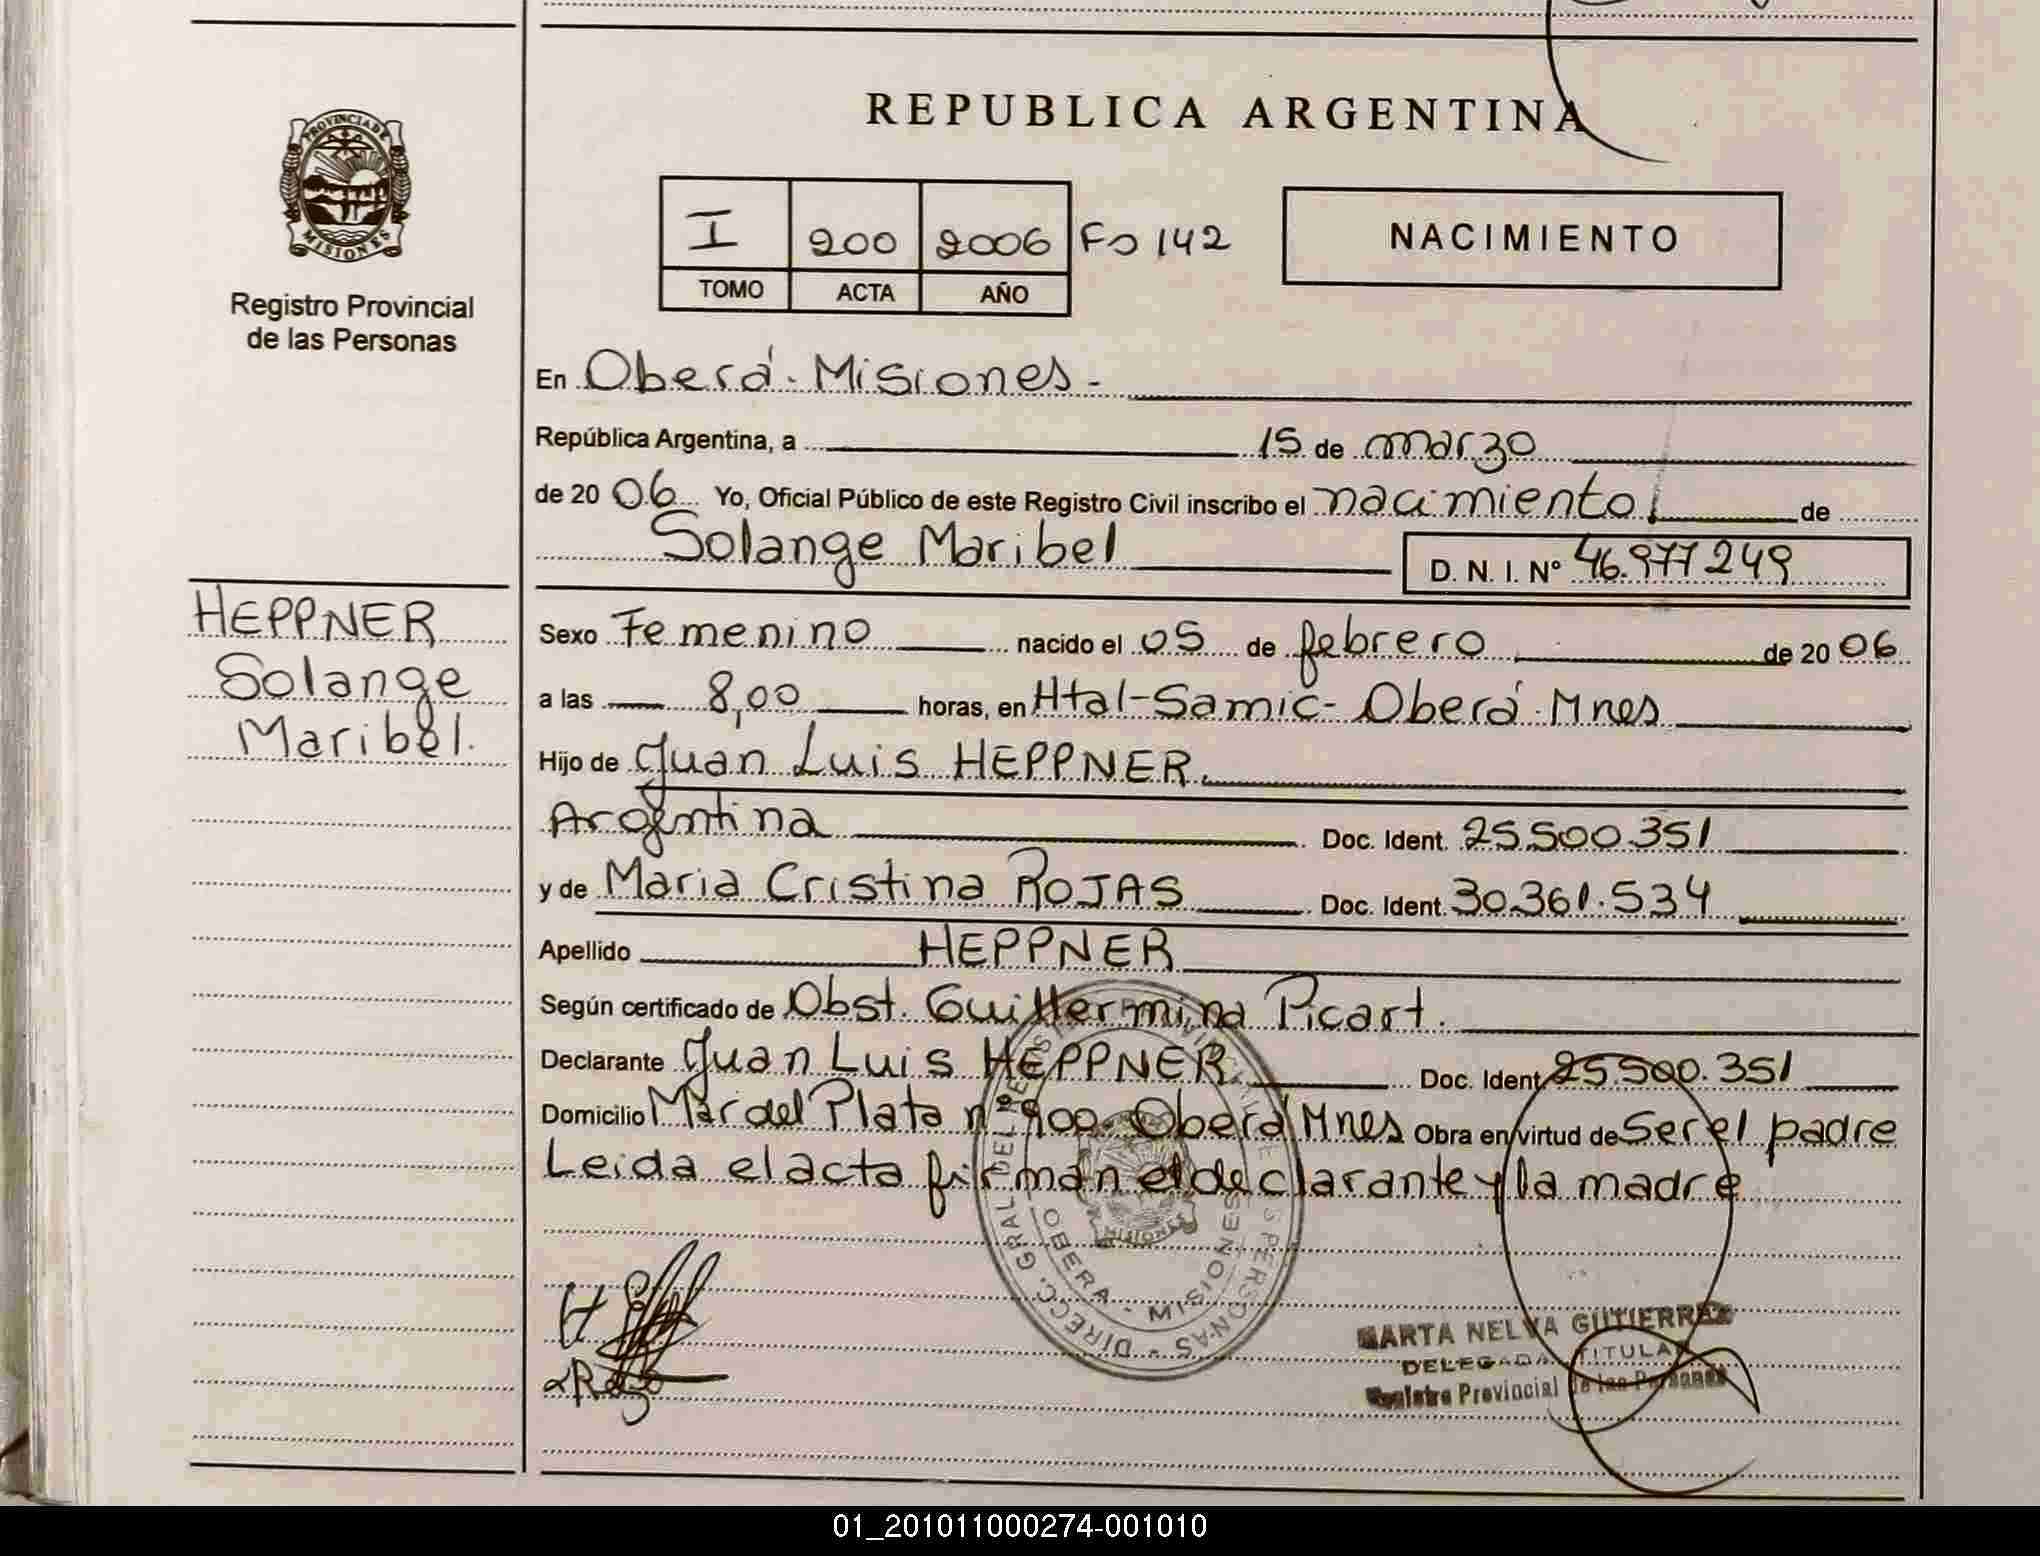 REPUBLICA ARGENTINA
PROVINCIA DE
MISIONES
Registro Provincial
de las Personas
I 200 2006 Fo 142
TOMO ACTA AÑO
NACIMIENTO
En Oberá - Misiones -
República Argentina, a 15 de marzo
de 20 06 Yo, Oficial Público de este Registro Civil inscribo el nacimiento de
Solange Maribel D. N. I. Nº 46.977249
HEPPNER
Solange
Maribel.
Sexo Femenino nacido el 05 de febrero de 20 06
a las 8,00 horas, en Htal-Samic- Oberá - Mnes
Hijo de Juan Luis HEPPNER
Argentina Doc. Ident. 25.500.351
y de Maria Cristina ROJAS Doc. Ident. 30.361.534
Apellido HEPPNER
Según certificado de Obst. Guillermina Picart.
Declarante Juan Luis HEPPNER Doc. Ident 25.500.351
Domicilio Mar del Plata nº 900- Oberá Mnes Obra en virtud de Ser el padre
Leida el acta firman el declarante y la madre
OBERA - MISIONES
MISIONES
MARTA NELVA GUTIERREZ
DELEGADA TITULAR
Registro Provincial de las Personas
01_201011000274-001010